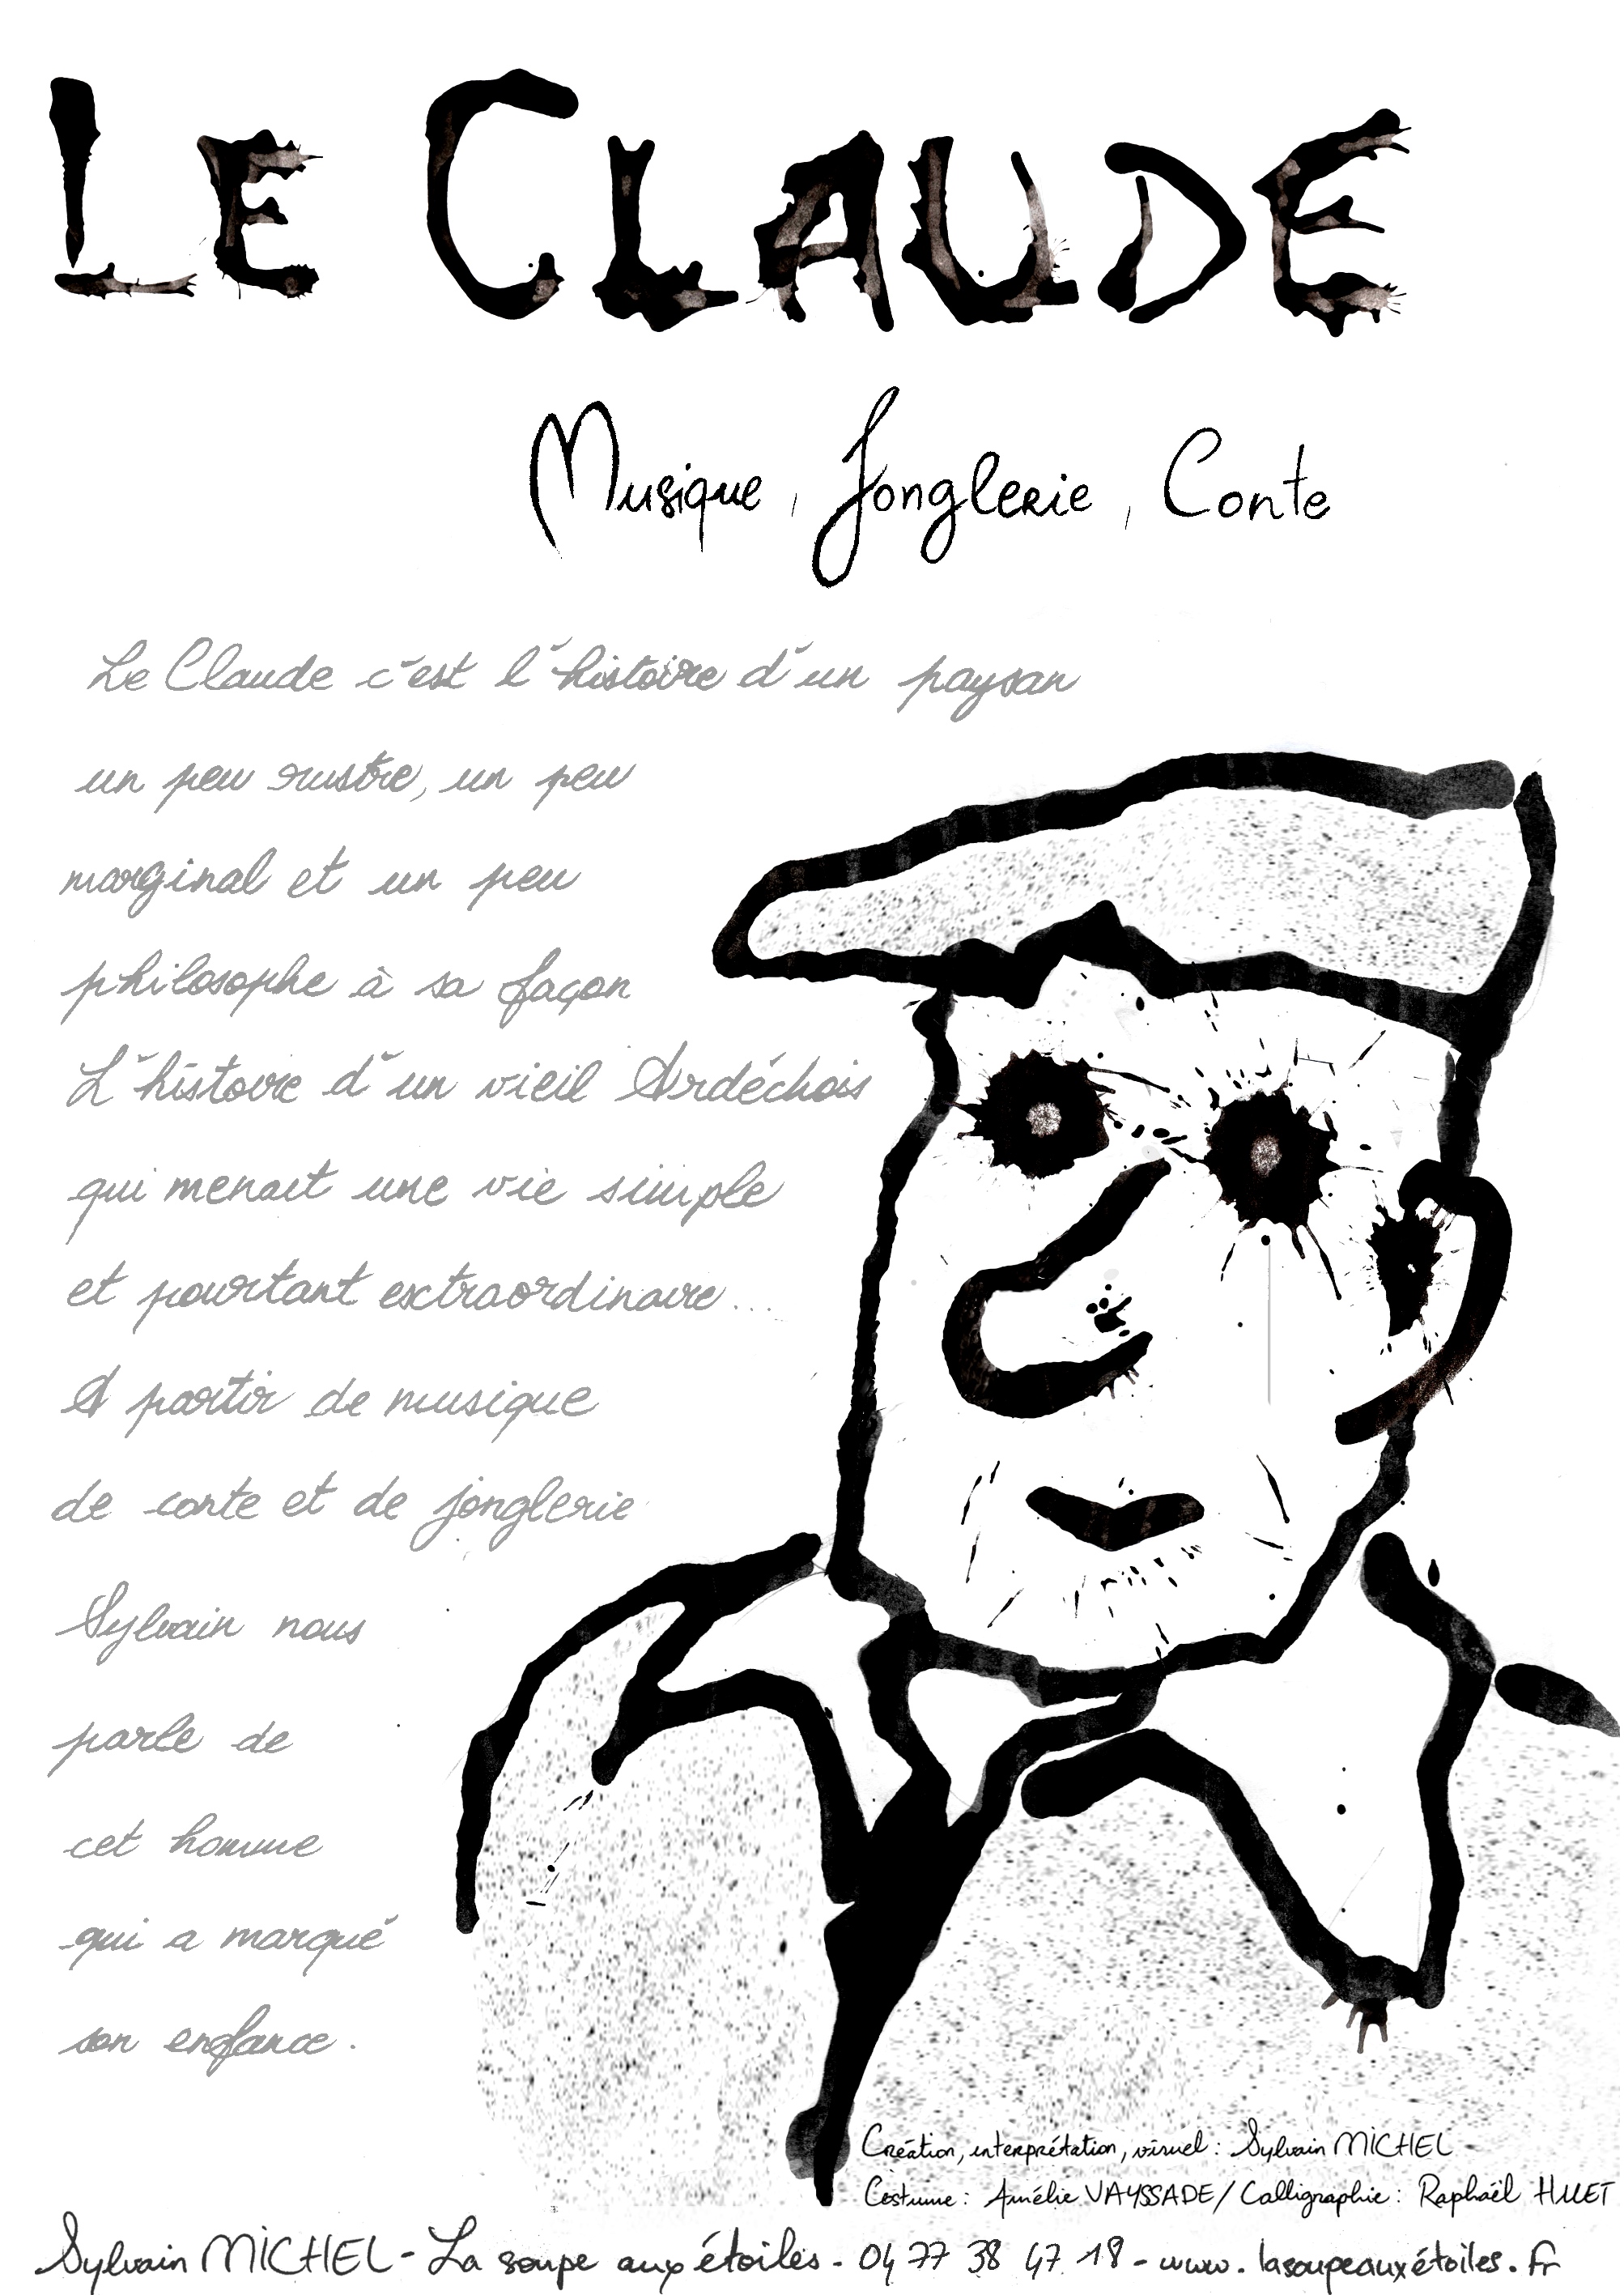 LE CLAUDE
Musique, Jonglerie, Conte
Le Claude c'est l'histoire d'un paysan
un peu rustre, un peu
marginal et un peu
philosophe à sa façon
L'histoire d'un vieil Ardéchois
qui menait une vie simple
et pourtant extraordinaire...
A partir de musique
de conte et de jonglerie
Sylvain nous
parle de
cet homme
qui a marqué
son enfance.
Création, interprétation, visuel : Sylvain MICHEL
Costume : Amélie VAYSSADE / Calligraphie : Raphaël HUET
Sylvain MICHEL - La soupe aux étoiles - 04 77 38 47 18 - www.lasoupeauxétoiles.fr